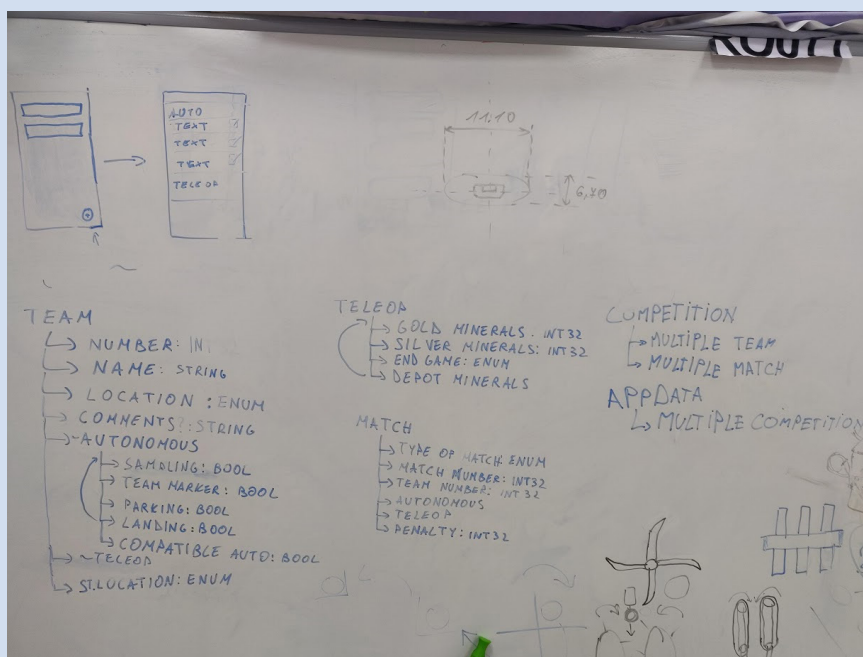 AUTO
TEXT
TEXT
TEXT
TELEOP
11.10
6,70
TEAM
NUMBER: INT
NAME: STRING
LOCATION: ENUM
COMMENTS?: STRING
~AUTONOMOUS
SAMPLING: BOOL
TEAM MARKER: BOOL
PARKING: BOOL
LANDING: BOOL
COMPATIBLE AUTO: BOOL
~TELEOP
ST.LOCATION: ENUM
TELEOP
GOLD MINERALS: INT32
SILVER MINERALS: INT32
END GAME: ENUM
DEPOT MINERALS
MATCH
TYPE OF MATCH: ENUM
MATCH NUMBER: INT32
TEAM NUMBER: INT32
AUTONOMOUS
TELEOP
PENALTY: INT32
COMPETITION
MULTIPLE TEAM
MULTIPLE MATCH
APPDATA
MULTIPLE COMPETITION